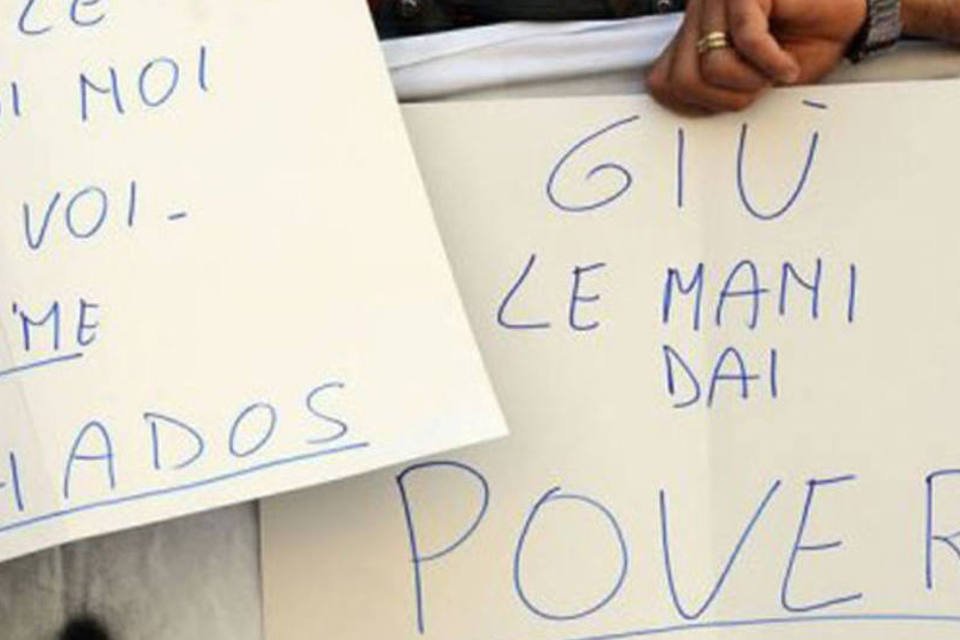 CE
MOI
VOI-
ME
GIÙ
LE MANI
DAI
POVER